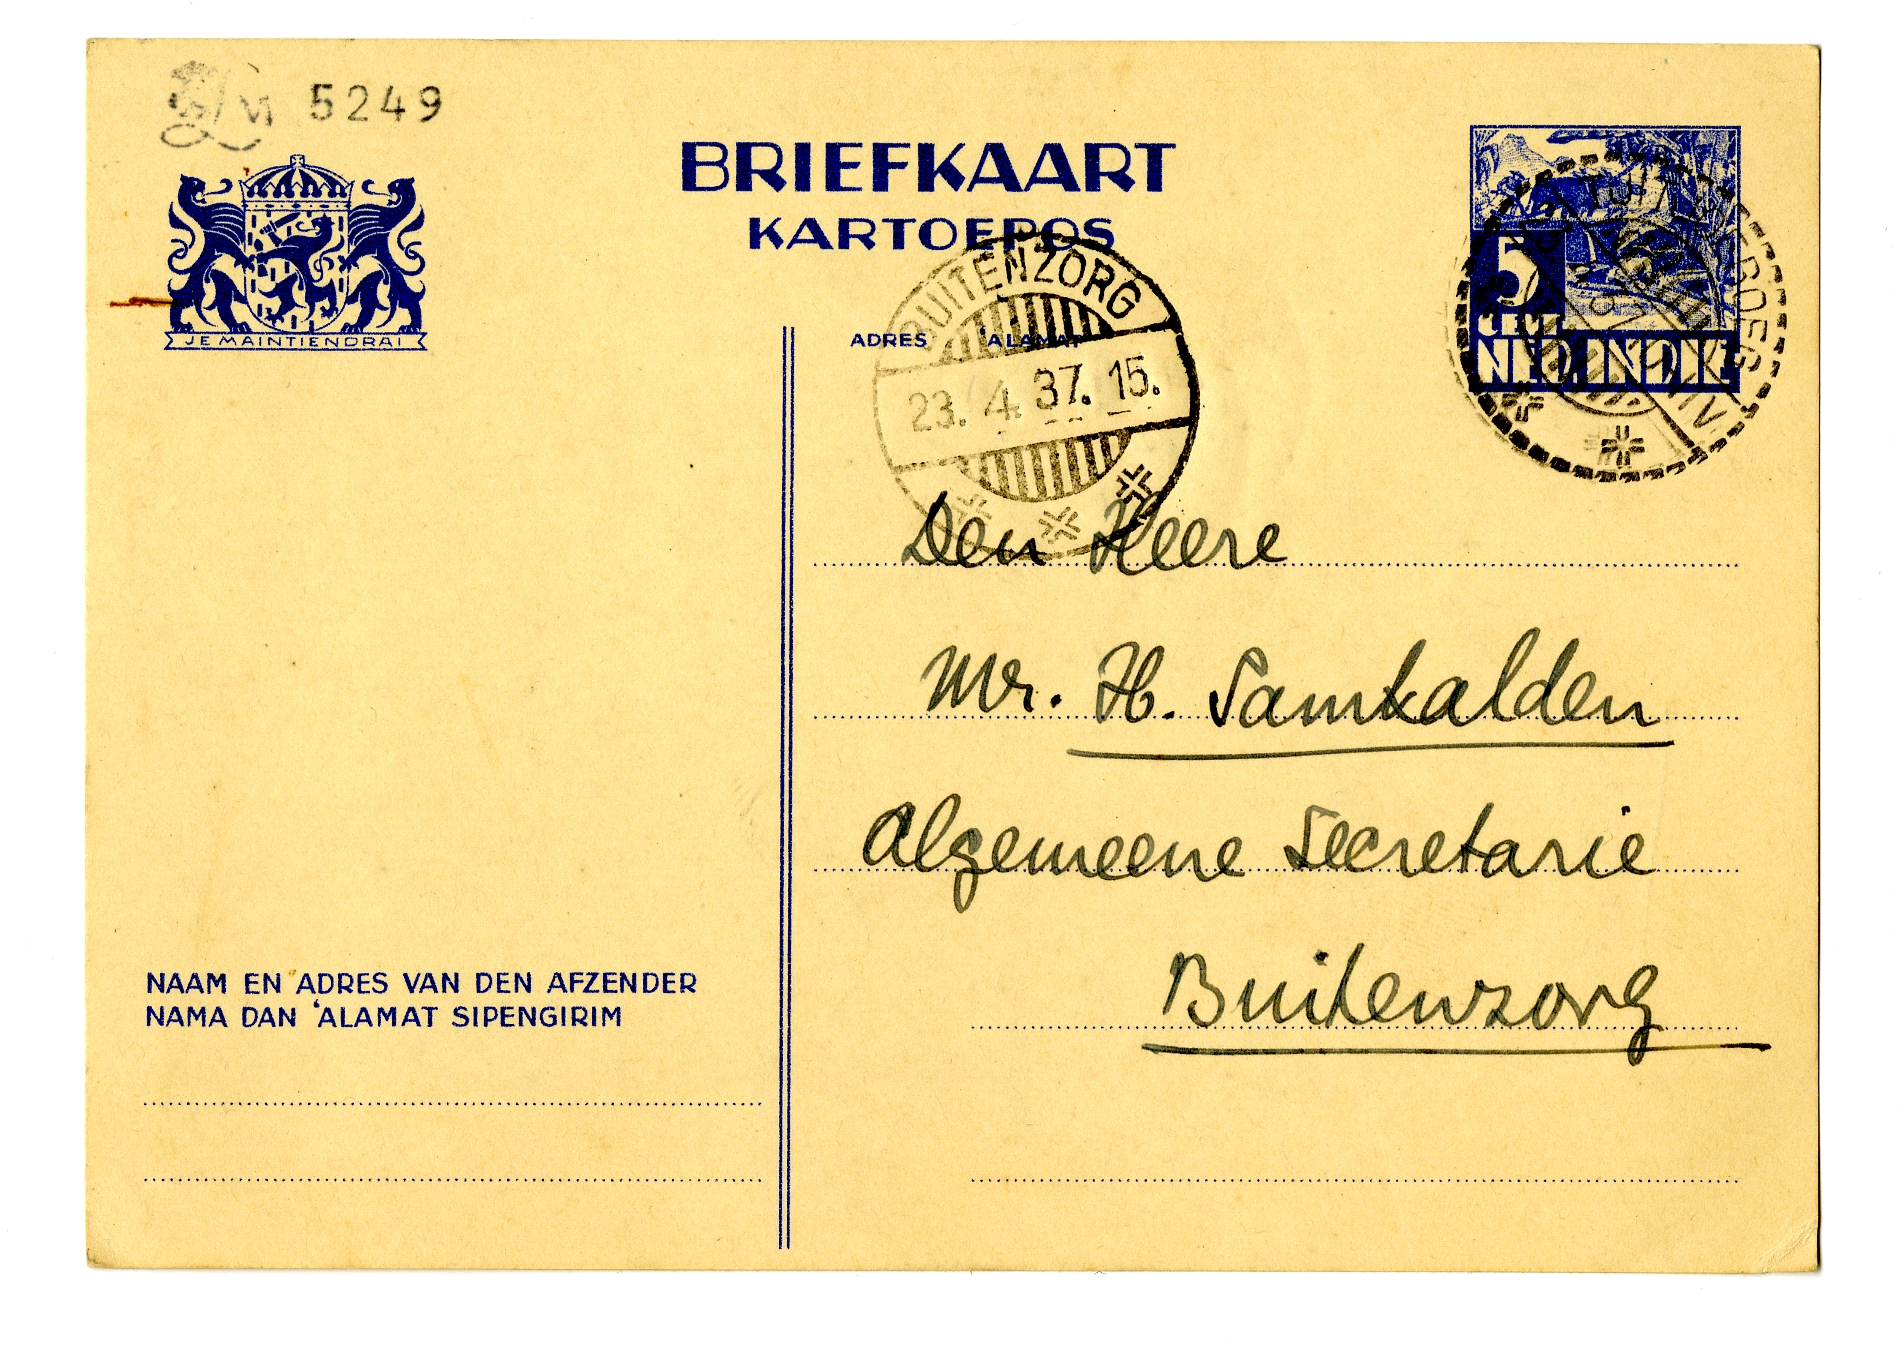 VI 5249
BRIEFKAART
KARTOEPOS
JE MAINTIENDRAI
5
CENT
NED. INDIE
BUITENZORG
23. 4. 37. 15.
ADRES 'ALAMAT
Den Heere
Mr. H. Samkalden
Algemeene Secretarie
Buitenzorg
NAAM EN ADRES VAN DEN AFZENDER
NAMA DAN 'ALAMAT SIPENGIRIM